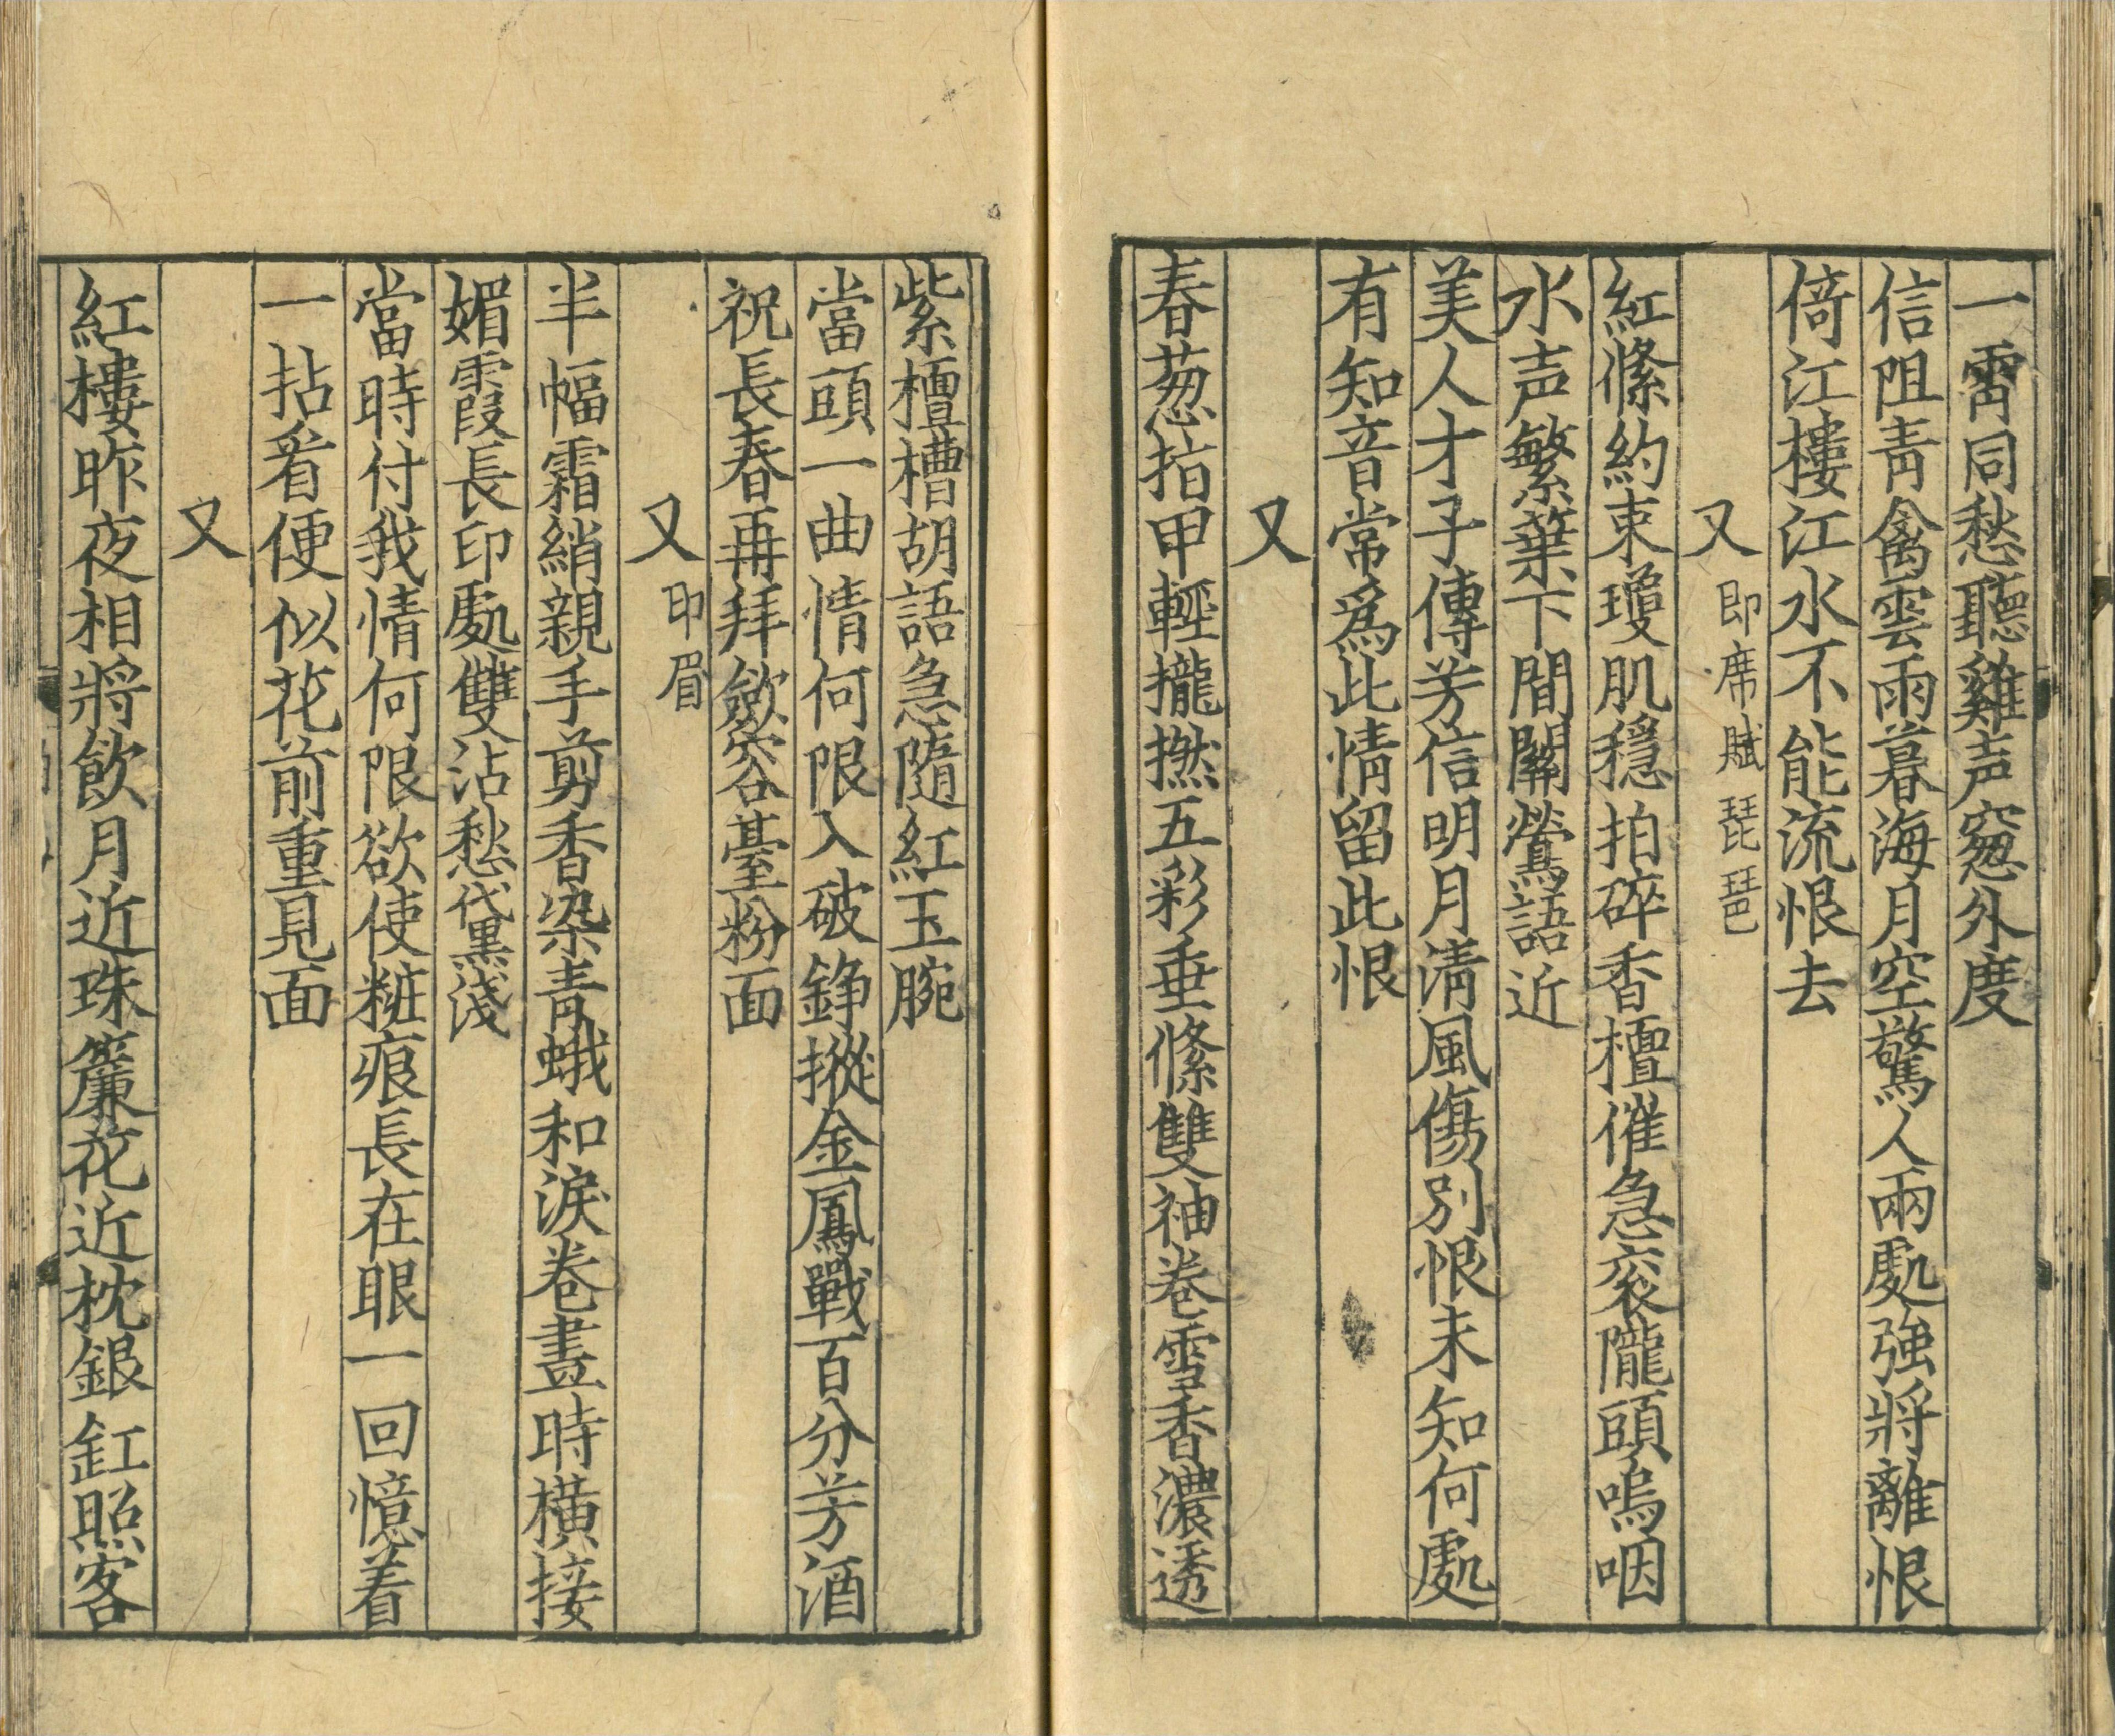 一霄同愁聽雞声窓外度
信阻青禽雲雨暮海月空驚人兩處強將離恨
倚江樓江水不能流恨去
又 即席賦琵琶
紅絛約束瓊肌穩拍碎香檀催急衮隴頭嗚咽
水声繁葉下間關鶯語近
美人才子傳芳信明月清風傷別恨未知何處
有知音常為此情留此恨
又
春葱指甲輕攏撚五彩垂絛雙袖卷雪香濃透
紫檀槽胡語急隨紅玉腕
當頭一曲情何限入破錚摐金鳳戰百分芳酒
祝長春再拜斂容擡粉面
又 印眉
半幅霜綃親手剪香染青蛾和淚卷畫時橫接
媚霞長印處雙沾愁黛淺
當時付我情何限欲使粧痕長在眼一回憶着
一拈看便似花前重見面
又
紅樓昨夜相將飲月近珠簾花近枕銀釭照客